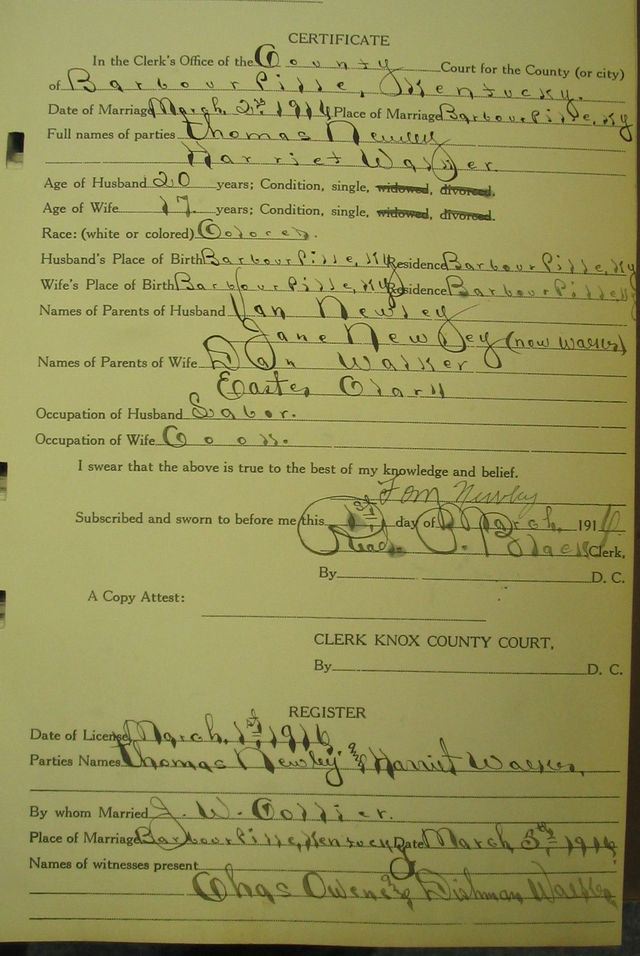 CERTIFICATE
In the Clerk's Office of the County Court for the County (or city)
of Barbourville, Kentucky.
Date of Marriage March, 2nd 1916 Place of Marriage Barbourville, Ky
Full names of parties Thomas Newley
Harriet Walker.
Age of Husband 20 years; Condition, single, widowed, divorced.
Age of Wife 17. years; Condition, single, widowed, divorced.
Race: (white or colored) Colored.
Husband's Place of Birth Barbourville, Ky Residence Barbourville, Ky
Wife's Place of Birth Barbourville, Ky Residence Barbourville Ky
Names of Parents of Husband Van Newley
Jane Newley (now Walker)
Names of Parents of Wife Dan Walker
Easter Clark
Occupation of Husband Labor.
Occupation of Wife Cook.
I swear that the above is true to the best of my knowledge and belief.
Tom Newley
Subscribed and sworn to before me this 1st day of March 1916
Read P. Black Clerk,
By D. C.
A Copy Attest:
CLERK KNOX COUNTY COURT,
By D. C.
REGISTER
Date of License March, 1st, 1916,
Parties Names Thomas Newley, & Harriet Walker,
By whom Married J. W. Collier.
Place of Marriage Barbourville, Kentucky Date March 5th, 1916
Names of witnesses present
Chas Owens & Dishman Walker